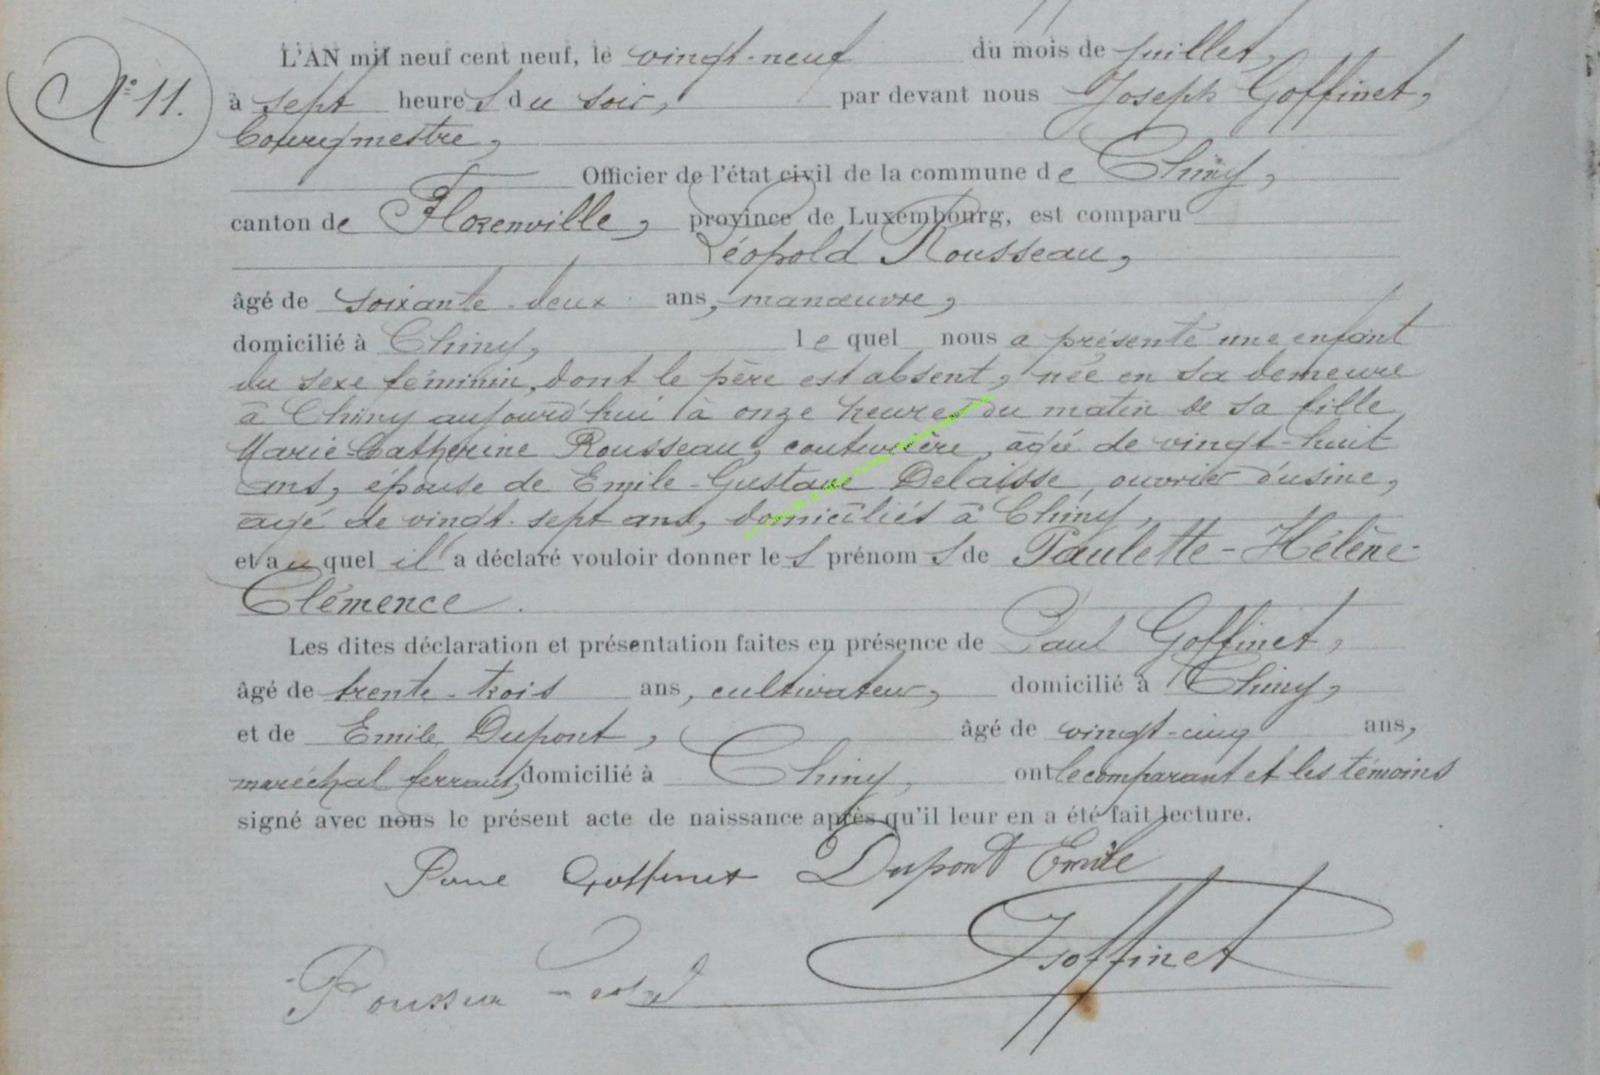 N° 11.
L'AN mil neuf cent neuf, le vingt-neuf du mois de juillet,
à sept heures du soir, par devant nous Joseph Goffinet,
bourgmestre,
Officier de l'état civil de la commune de Chiny,
canton de Florenville, province de Luxembourg, est comparu
Léopold Rousseau,
âgé de soixante-deux ans, manœuvre,
domicilié à Chiny, lequel nous a présenté une enfant
du sexe féminin, dont le père est absent, née en sa demeure
à Chiny aujourd'hui à onze heures du matin de sa fille
Marie-Catherine Rousseau, couturière, âgé de vingt-huit
ans, épouse de Emile-Gustave Delaisse, ouvrier d'usine,
âgé de vingt-sept ans, domiciliés à Chiny,
et au quel il a déclaré vouloir donner les prénoms de Paulette-Hélène-
Clémence.
Les dites déclaration et présentation faites en présence de Paul Goffinet,
âgé de trente-trois ans, cultivateur, domicilié à Chiny,
et de Emile Dupont, âgé de vingt-cinq ans,
maréchal ferrant, domicilié à Chiny, ont le comparant et les témoins
signé avec nous le présent acte de naissance après qu'il leur en a été fait lecture.
Paul Goffinet Dupont Emile
JGoffinet